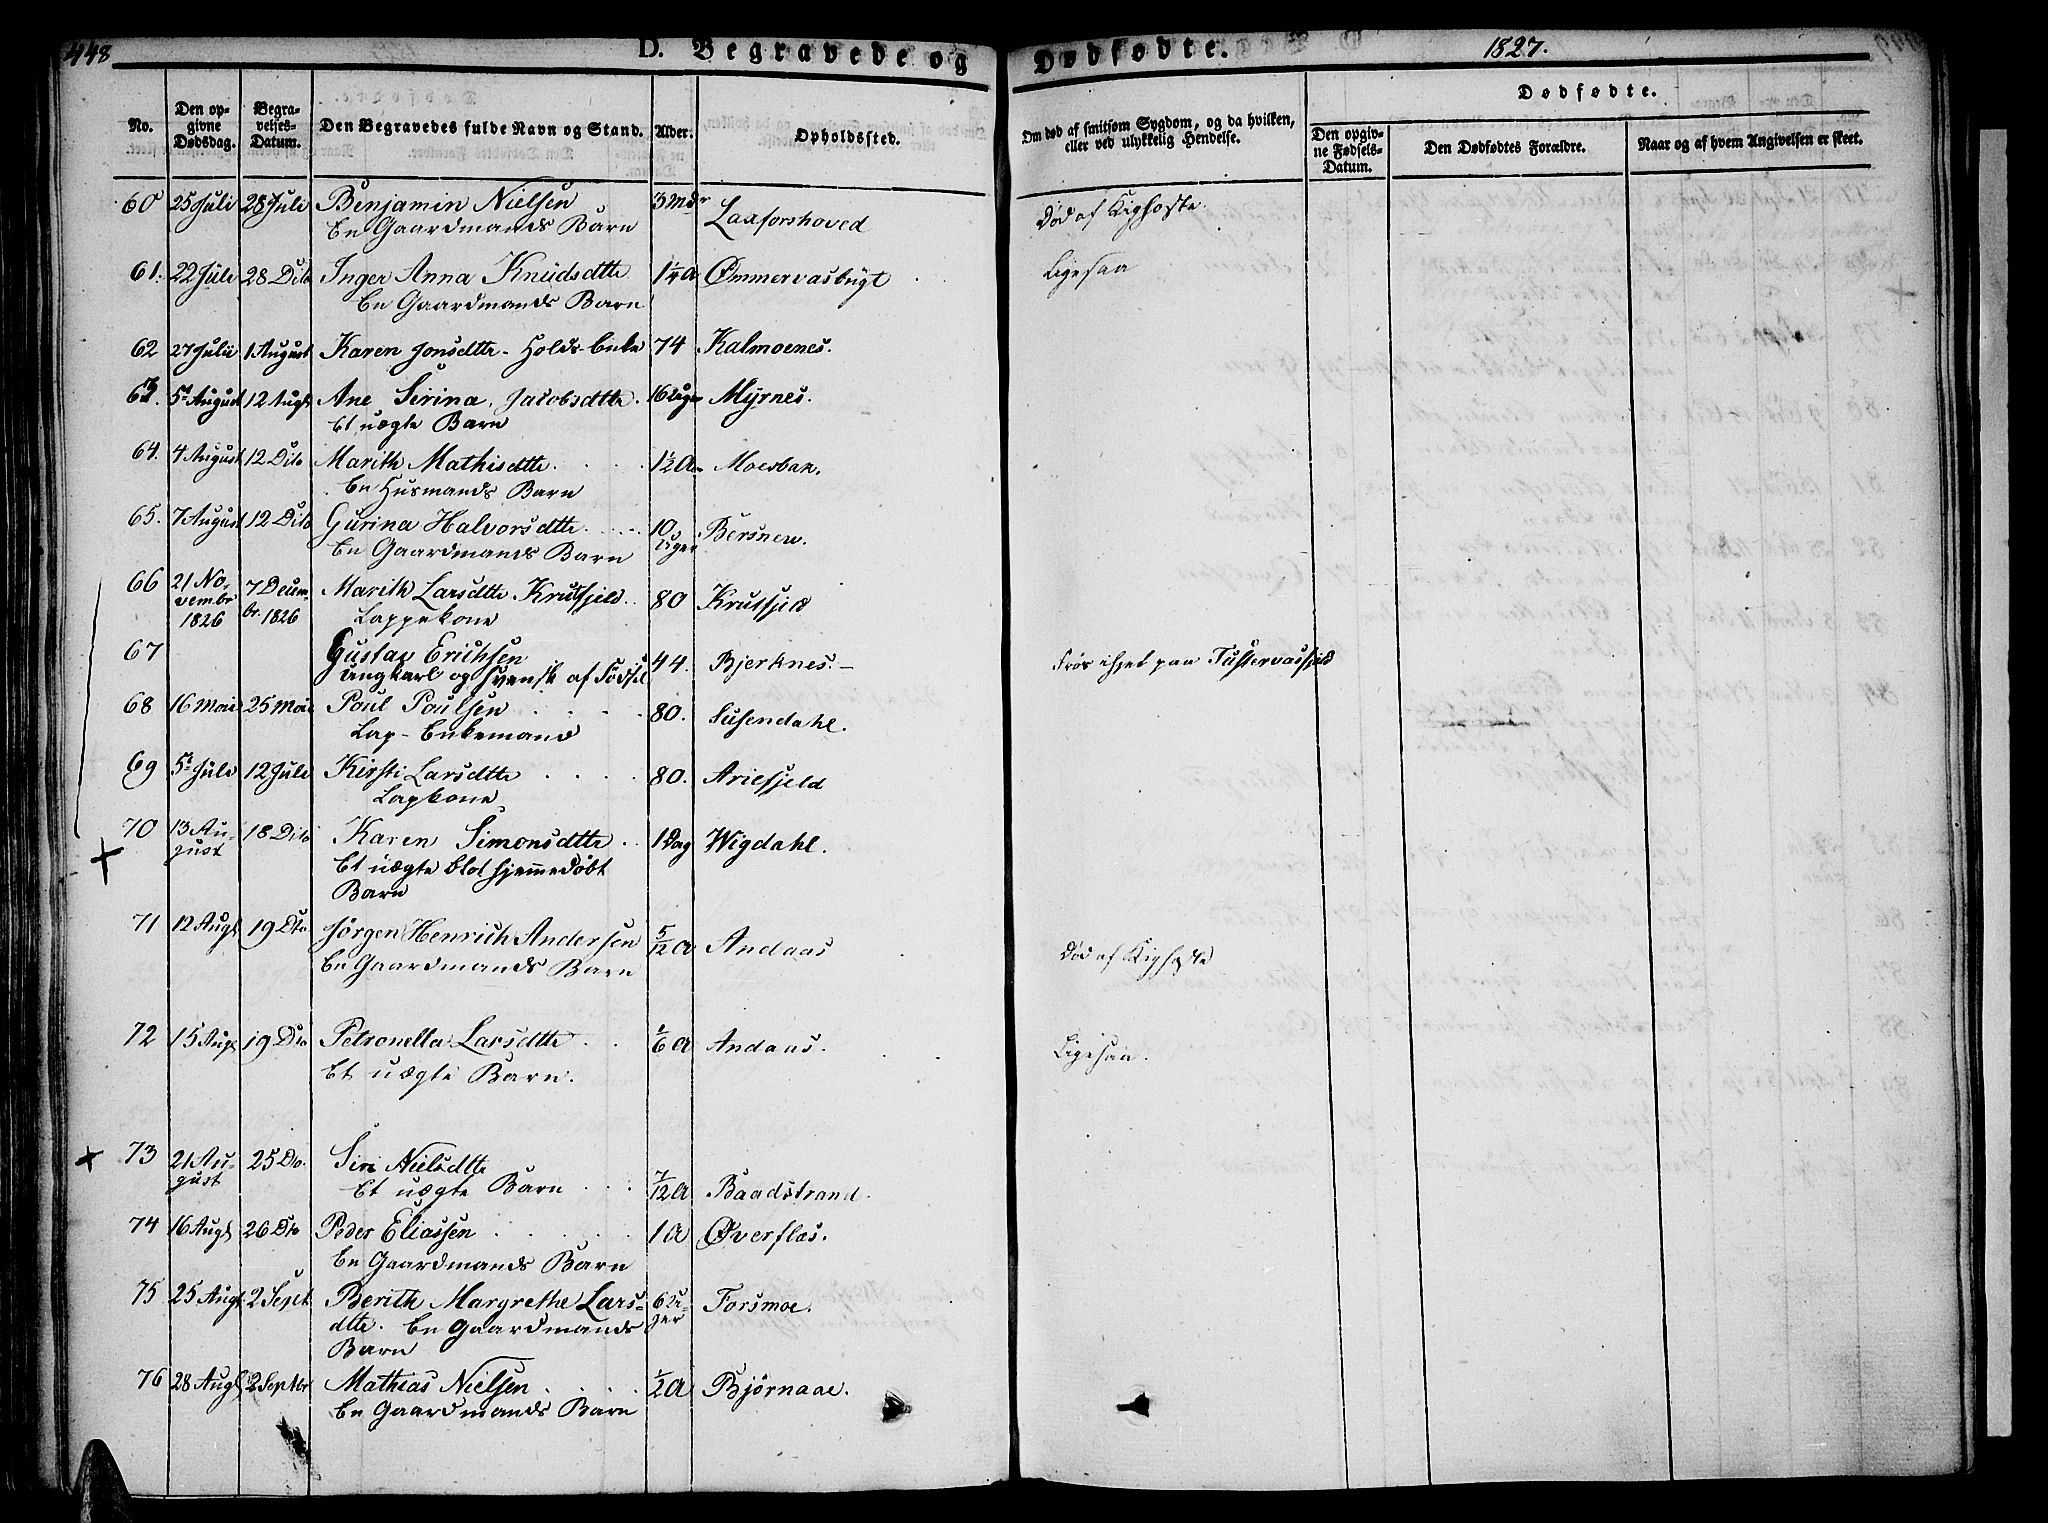 448
D. Begravede og Dødfødte.
1827.
No.
Den opgivne Dødsdag.
Begravelses-Datum.
Den Begravedes fulde Navn og Stand.
Alder.
Opholdssted.
Om død af smitsom Sygdom, og da hvilken, eller ved ulykkelig Hendelse.
Dødfødte.
Den opgivne Fødsels-Datum.
Den Dødfødtes Forældre.
Naar og af hvem Angivelsen er skeet.
60 25 Juli 28 Juli Benjamin Nielsen 3 Mdr Laxforshoved Død af Kighoste.
En Gaardmands Barn
61. 22 Juli 28 Dito Inger Anna Knudsdtte 1¼ A Ømmervasbugt Ligesaa
En Gaardmands Barn
62 27 Julii 1 August Karen Jonsdtte - Holds-Enke 74 Kalmoenes.
63. 5t August 12 Augt Ane Serina Jacobsdtte. 16 Uger Myrnes.
Et uægte Barn
64. 4 August 12 Dito Marith Mathisdtte. 1½ A Moesbak.
En Husmands Barn
65. 7 August 12 Dito Gurina Halvorsdtte 10 Uger
En Gaardmands Barn
66 21 November 1826 7 Decembr. 1826 Marith Larsdtte Krutfjeld. 80 Krutfjeld
Lappekone
67 Gustav Erichsen 44. Bjerknes. - Frøs ihjel paa Tustervasfjeld
Ungkarl og Svensk af Fødsel
68 16 Mai 25 Mai Poul Poulsen 80. Susendahl.
Lap-Enkemand
69 5t Juli 12 Juli Kirsti Larsdtte 80. Ariefjeld
Lapkone
70 13 August 18 Dito Karen Simonsdtte 1 Dag Wigdahl.
Et uægte blot hjemmedøbt
Barn
71 12 Augt 19 Dto Jørgen Henrich Andersen 5/12 A Andaas Død af Kighoste
En Gaardmands Barn
72 15 Augt 19 Dto Petronella Larsdtte 1/6 A Andaas. Ligesaa.
Et uægte Barn.
73 21 August 25 Dto. Siri Nielsdtte
Et uægte Barn 7/12 A Baadstrand.
74 16 Augt 26 Dto Peder Eliassen 1 A Øverflas.
En Gaardmands Barn
75 25 Augt 2 Sept Berith Margrethe Lars- 6 Uger Forsmoe.
dtte. En Gaardmands
Barn
76 28 Augt 2 Septbr Mathias Nielsen ½ A Bjørnaae.
En Gaardmands Barn